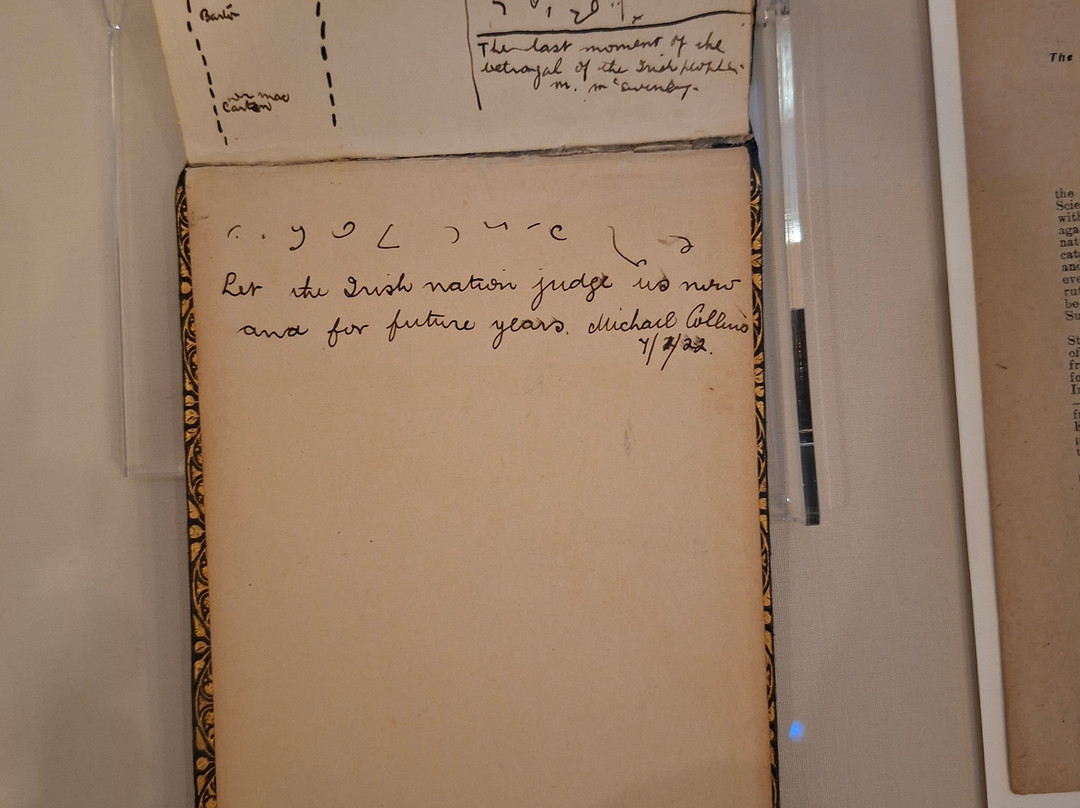 Barton
The last moment of the
betrayal of the Irish people.
Let the Irish nation judge us now
and for future years. Michael Collins
7/2/22.
The
the
Scie
with
aga
nat
cat
and
eve
rul
be
Su
St
of
fr
fo
In